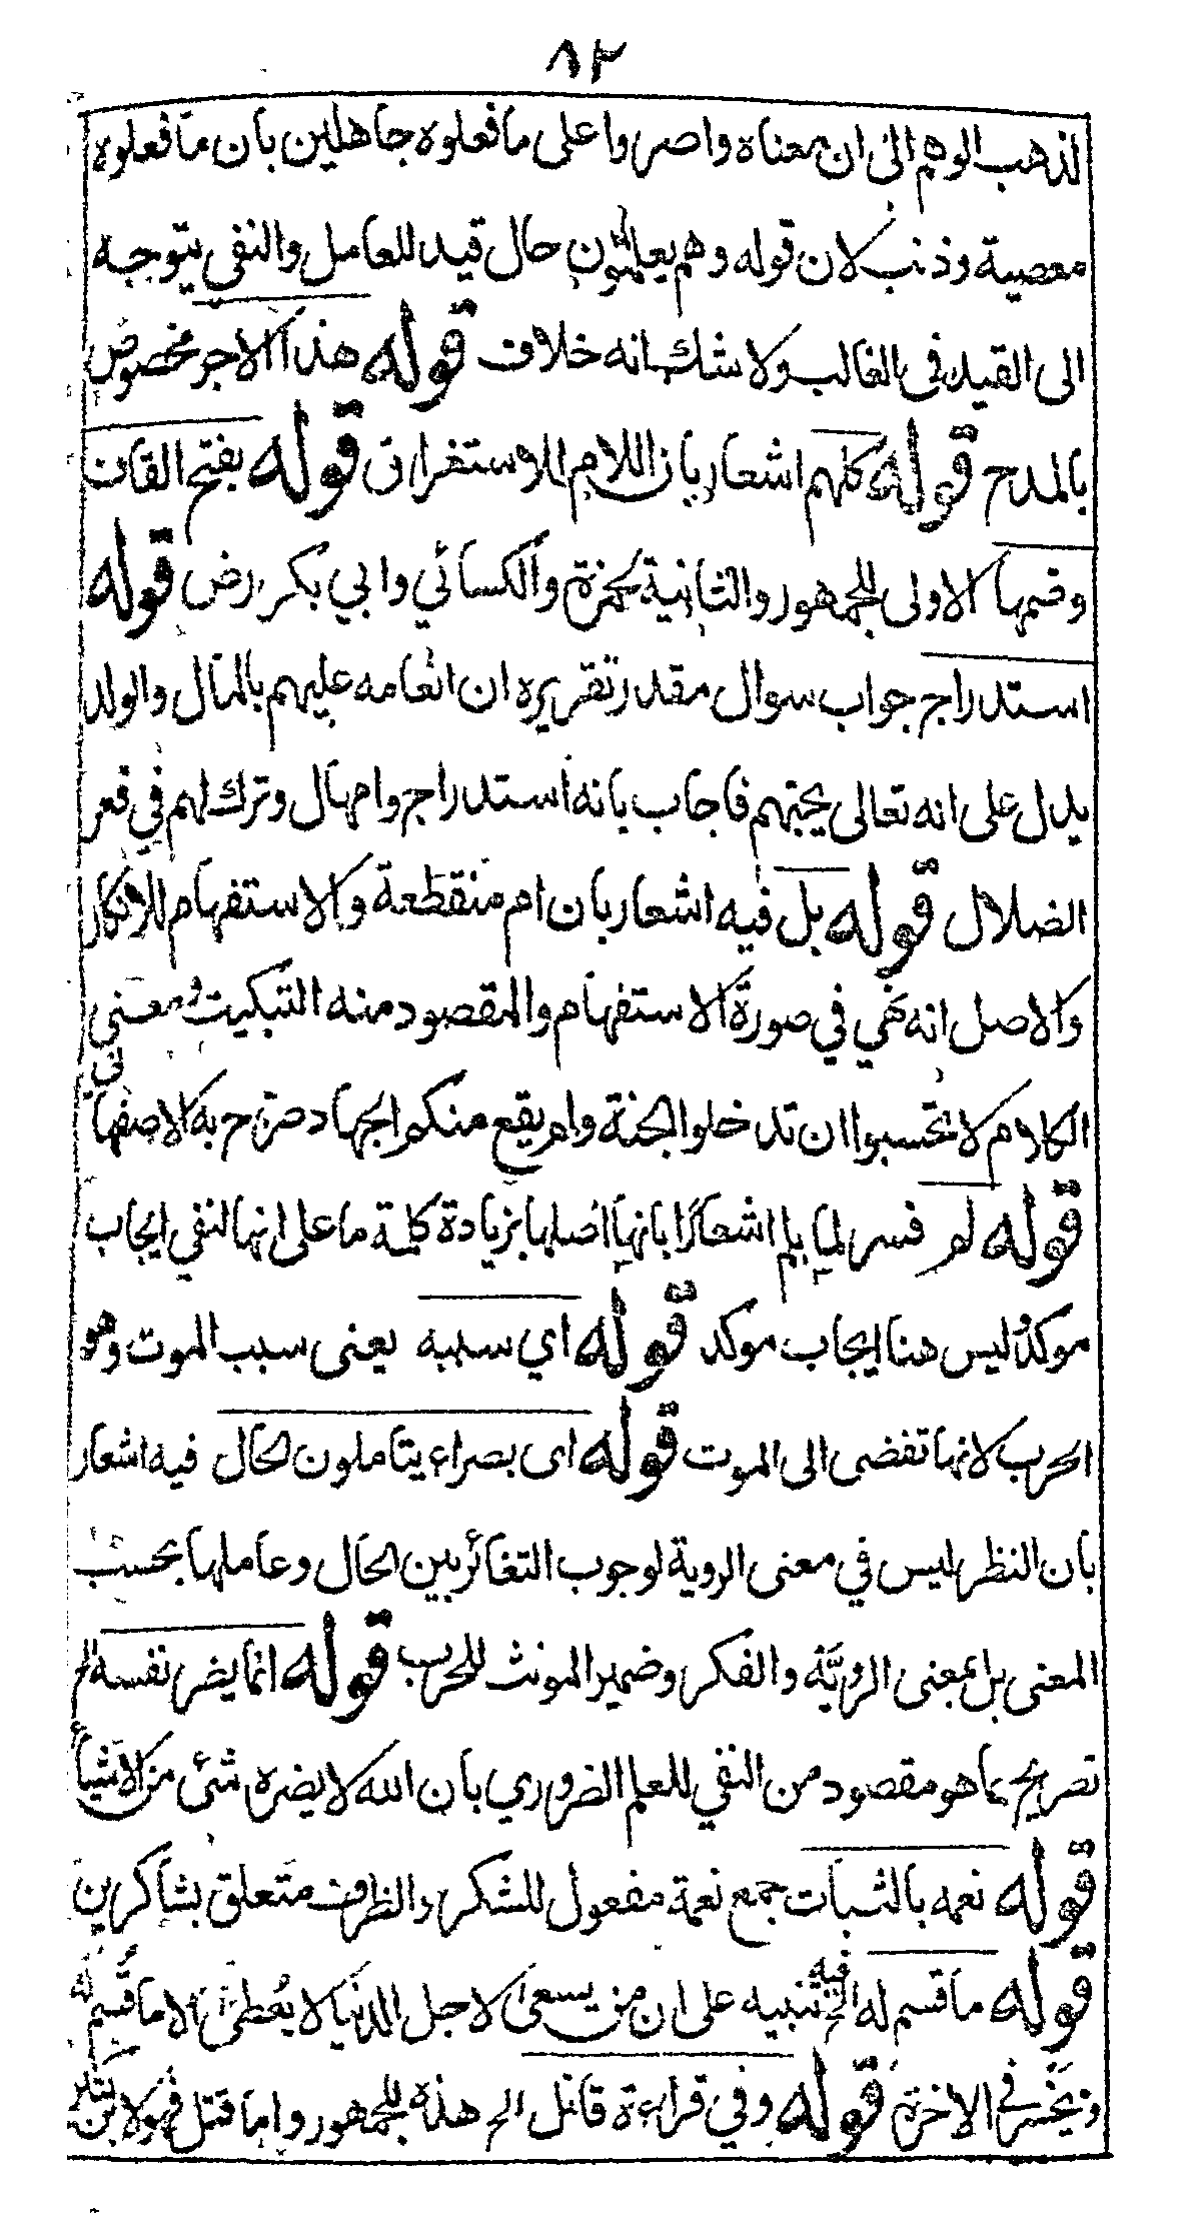 ٨٢
لذهب الوهم الى ان معناه واصروا على ما فعلوه جاهلين بان ما فعلوه
معصية وذنب لان قوله وهم يعلمون حال قيد للعامل والنفي يتوجه
الى القيد في الغالب ولا شك انه خلاف قوله هذا الاجر مخصوص
بالمدح قوله كلهم اشعار بان اللام للاستغراق قوله بفتح القاف
وضمها الاولى للجمهور والثانية لحمزة والكسائي وابي بكر رض قوله
استدراج جواب سوال مقدر تقريره ان انعامه عليهم بالمال والولد
يدل على انه تعالى يحبهم فاجاب بانه استدراج وامهال وترك لهم في قعر
الضلال قوله بل فيه اشعار بان ام منقطعة والاستفهام للانكار
والاصل انه نهي في صورة الاستفهام والمقصود منه التبكيت ومعنى
الكلام لا تحسبوا ان تدخلوا الجنة ولم يقع منكم الجهاد صرح به الاصفهاني
قوله لم فسر لما بلم اشعارًا بانها اصلها بزيادة كلمة ما على انها لنفي ايجاب
موكد وليس هنا ايجاب موكد قوله اي سببه يعنى سبب الموت وهو
الحرب لانها تفضى الى الموت قوله اى بصراء يتاملون الحال فيه اشعار
بان النظر ليس في معنى الروية لوجوب التغائر بين الحال وعاملها بحسب
المعنى بل بمعنى الرويّة والفكر وضمير المونث للحرب قوله انما يضر نفسه الخ
تصريح بما هو مقصود من النفي للعلم الضروري بان الله لا يضره شئ من الاشياء
قوله نعمه بالثبات جمع نعمة مفعول للشكر والظرف متعلق بشاكرين
قوله ما قسم له الخ فيه تنبيه على ان من يسعى لاجل الدنيا لا يعُطى الا ما قُسم له
ويخسر في الاخرة قوله وفي قراءة قاتل الخ هذه للجمهور واما قتل فهو لابن